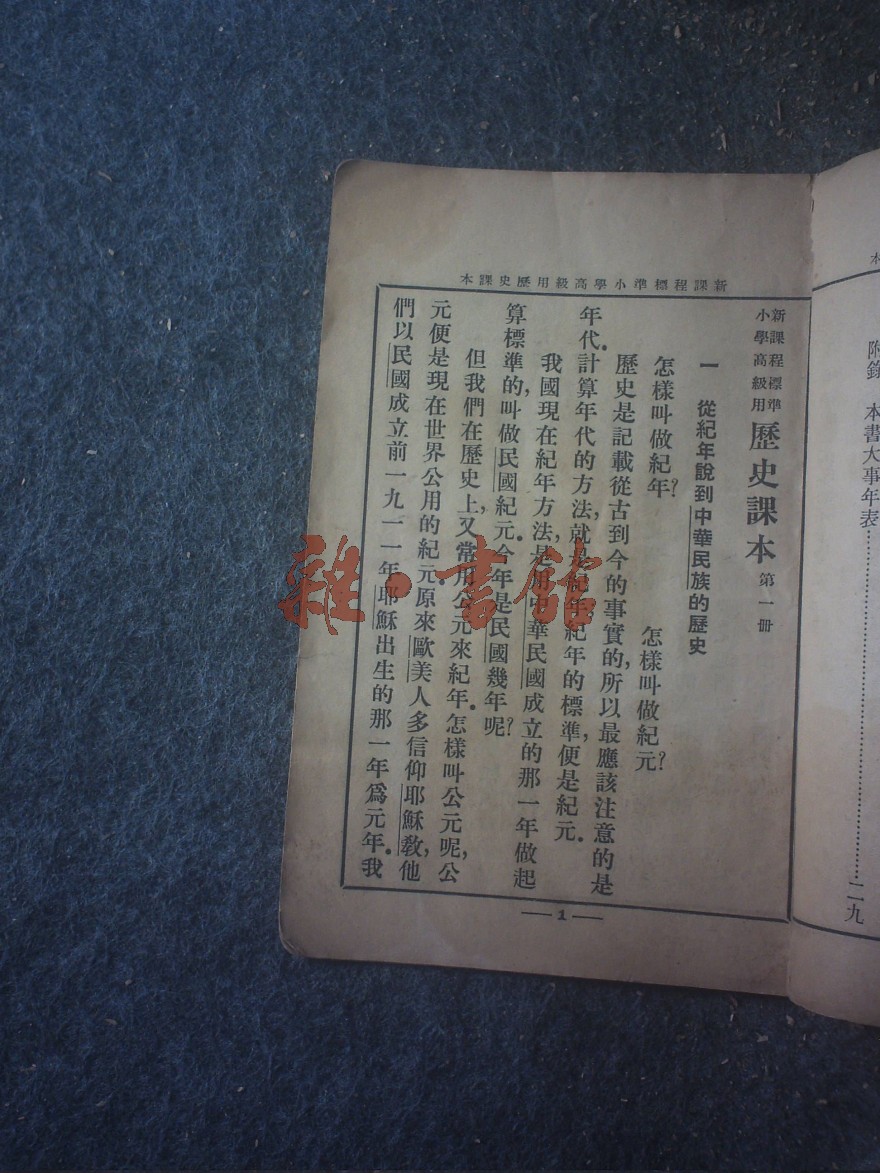 新課程標準小學高級用歷史課本
新課程標準
小學高級用
歷史課本 第一冊
一 從紀年說到中華民族的歷史
怎樣叫做紀年? 怎樣叫做紀元?
歷史是記載從古到今的事實的,所以最應該注意的是
年代.計算年代的方法,就是紀年.紀年的標準,便是紀元.
我國現在紀年方法,是用中華民國成立的那一年做起
算標準的,叫做民國紀元.今年是民國幾年呢?
但我們在歷史上,又常用公元來紀年.怎樣叫公元呢,公
元便是現在世界公用的紀元.原來歐美人多信仰耶穌教,他
們以民國成立前一九一一年耶穌出生的那一年為元年.我
— 1 —
本
附錄 本書大事年表……二九
雜·書館